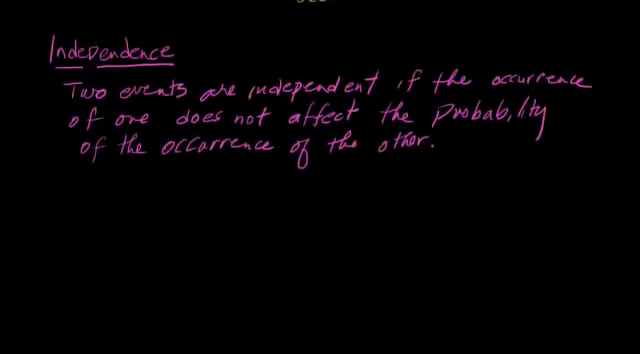 Independence
Two events are independent if the occurrence
of one does not affect the probability
of the occurrence of the other.